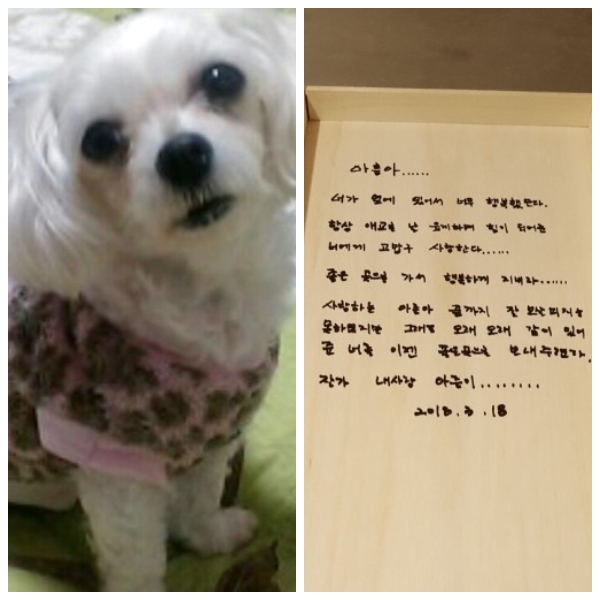 아름아......
너가 옆에 있어서 너무 행복했단다.
항상 애교로 날 웃게하며 힘이 되어준
너에게 고맙구 사랑한다......
좋은 곳으로 가서 행복하게 지내라......
사랑하는 아름아 끝까지 잘
못하였지만 그래도 오래 오래 같이 있어
준 너를 이젠 좋은곳으로 보내주련다.
잘가 내사랑 아름이........
2018.3.18